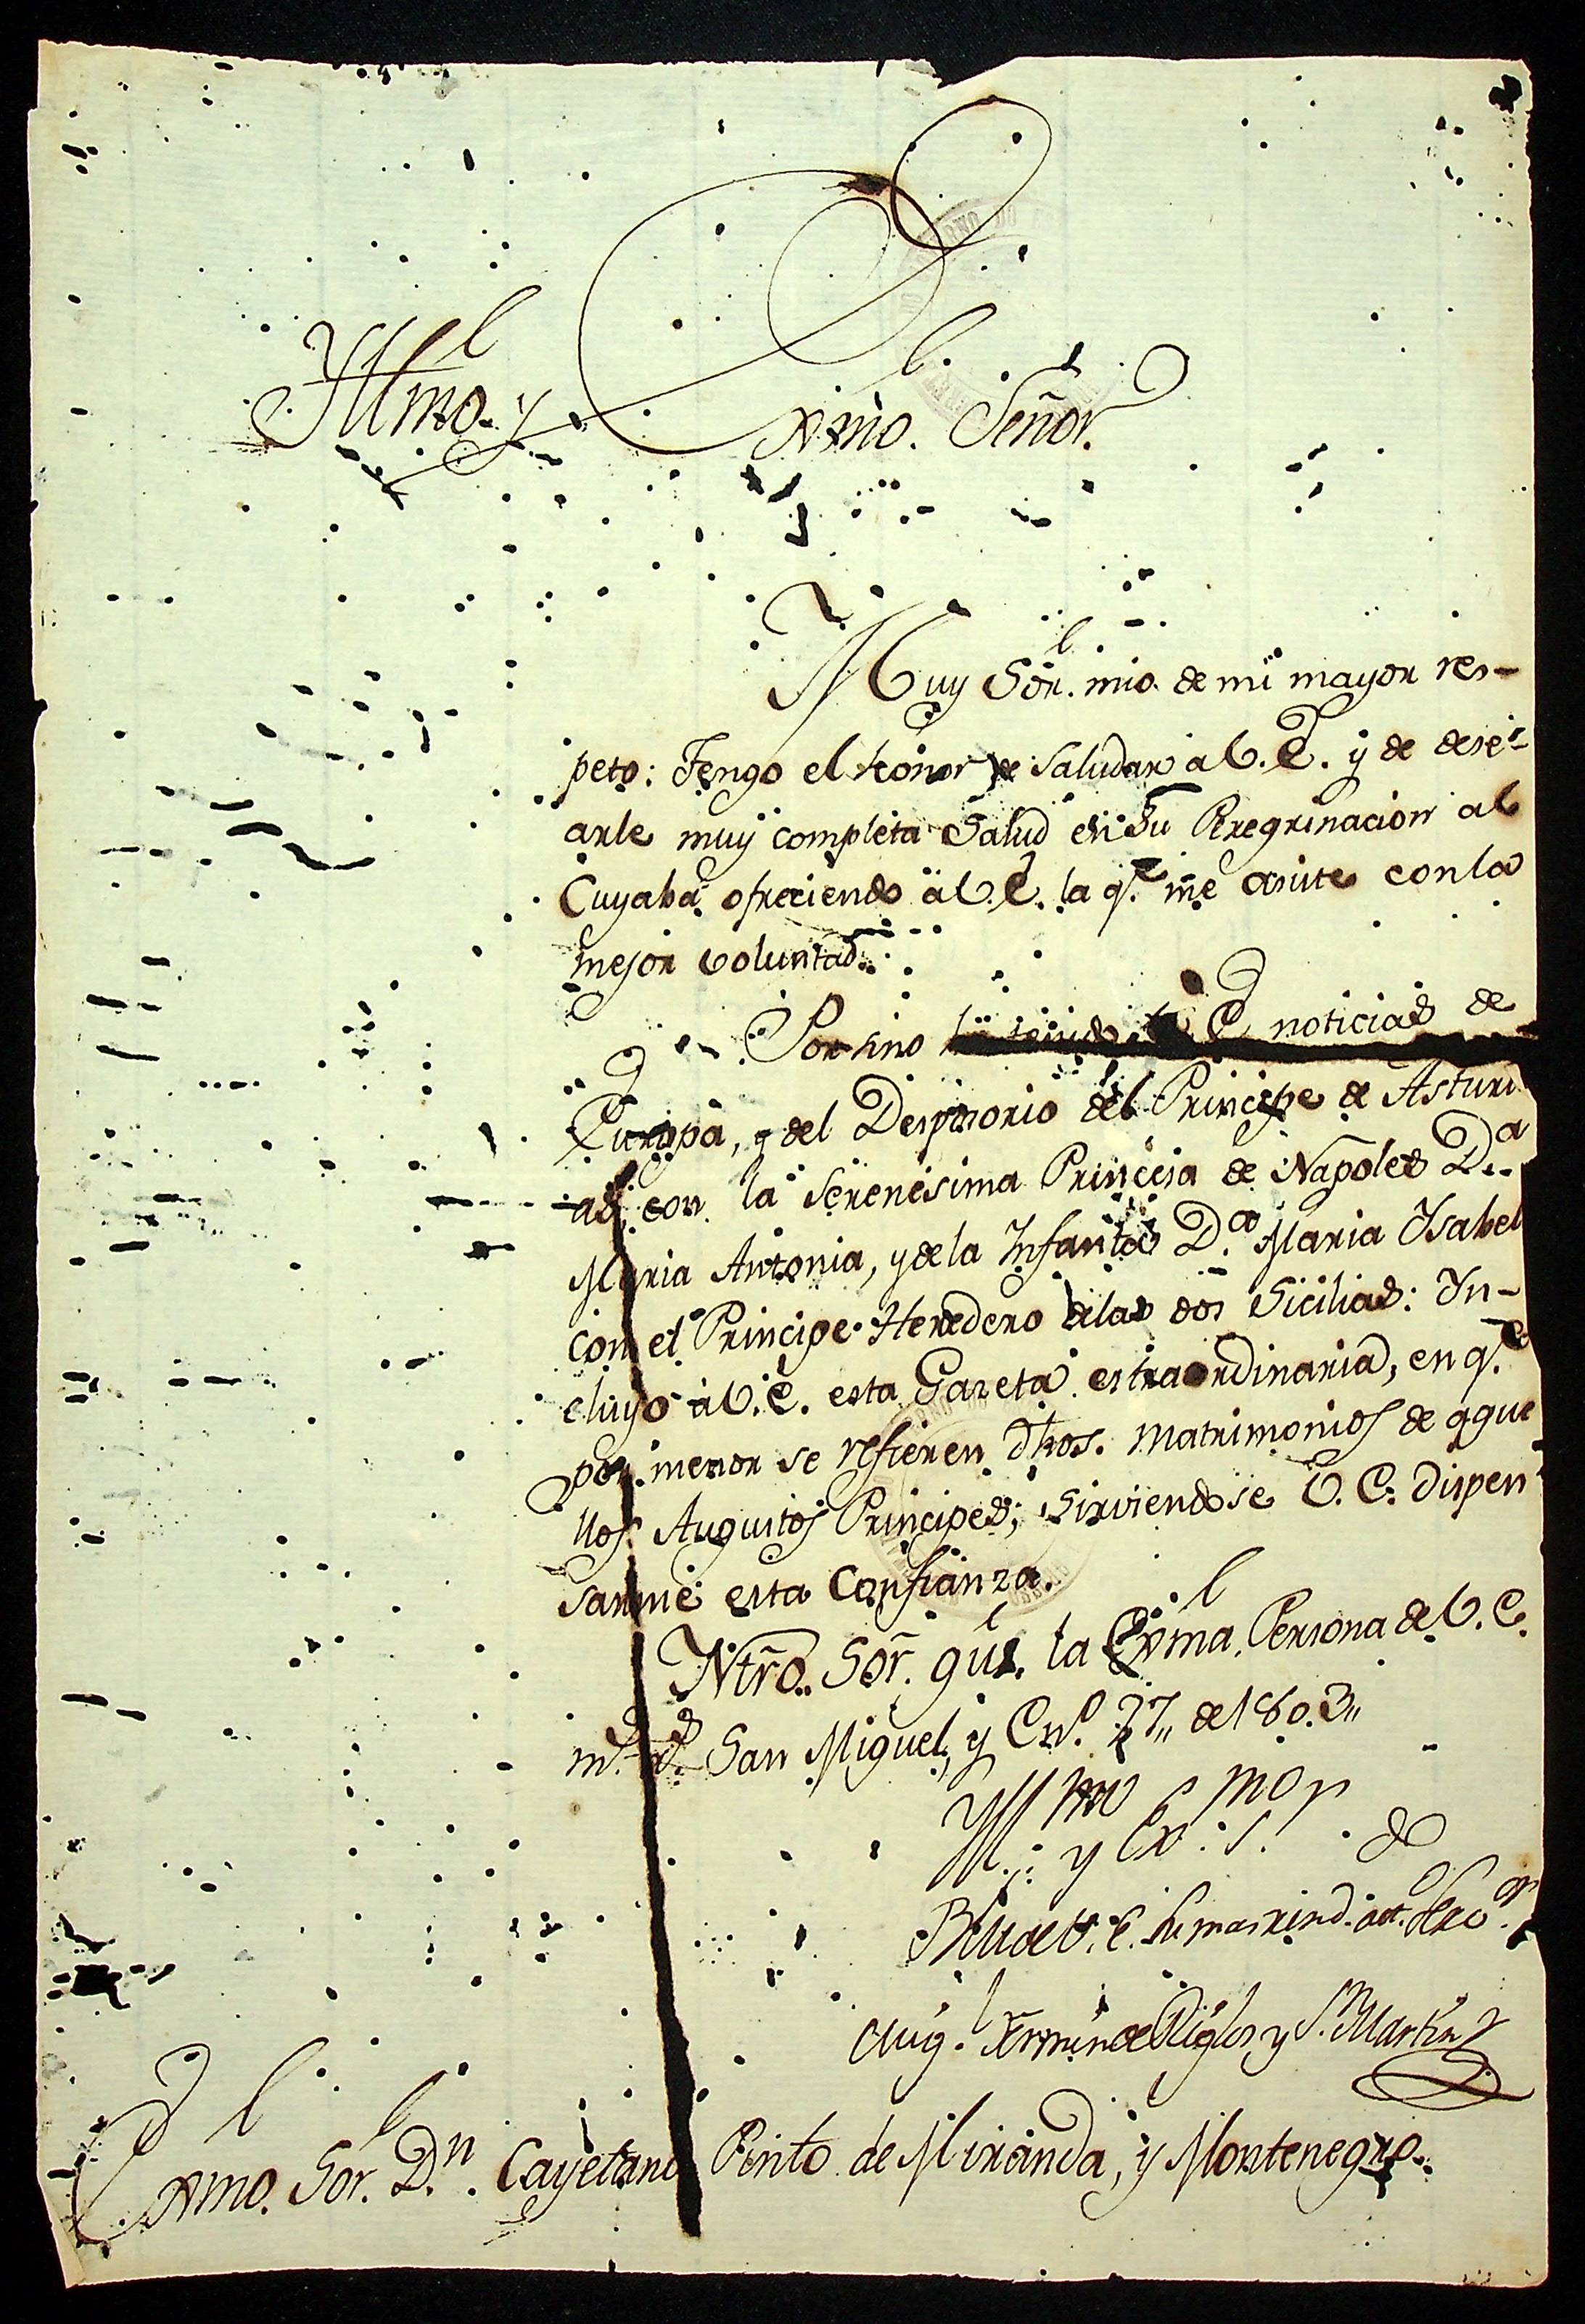 Yllmo. y Exmo. Señor.
Muy Sör. mio. de mi mayor res-
peto: Tengo el honor de Saludar a V. E. y de dese-
arle muy completa Salud en su Peregrinacion al
Cuyabá ofreciendo á V. E. la q.e me asiste con la
mejor voluntad.
Por si no E. noticias de
Europa, y del Desposorio del Principe de Asturi
as, con la Serenesima Princesa de Napoles D.a
Maria Antonia, y de la Infanta D.a Maria Ysabel
con el Principe Heredero delas dos Sicilias: Yn-
cluyo á V. E. esta Gazeta estraordinaria, en q.e
por menor se refieren dhos. matrimonios de aque
llos Augustos Principes; sirviendose V. E. dispen
sarme esta Confianza.
Ntrõ. Sor̃. gue. la Exma. Persona de V. E.
m.s a.s San Miguel, y En.o 27,, de 1803,,
Yll.mo y Ex.mo S.or
BlM de V. E. su mas rend. att.
Mig.l Fermin de Riglos y S.n Martin
Exmo. Sor. D.n Cayetano Pinto de Miranda, y Montenegro.